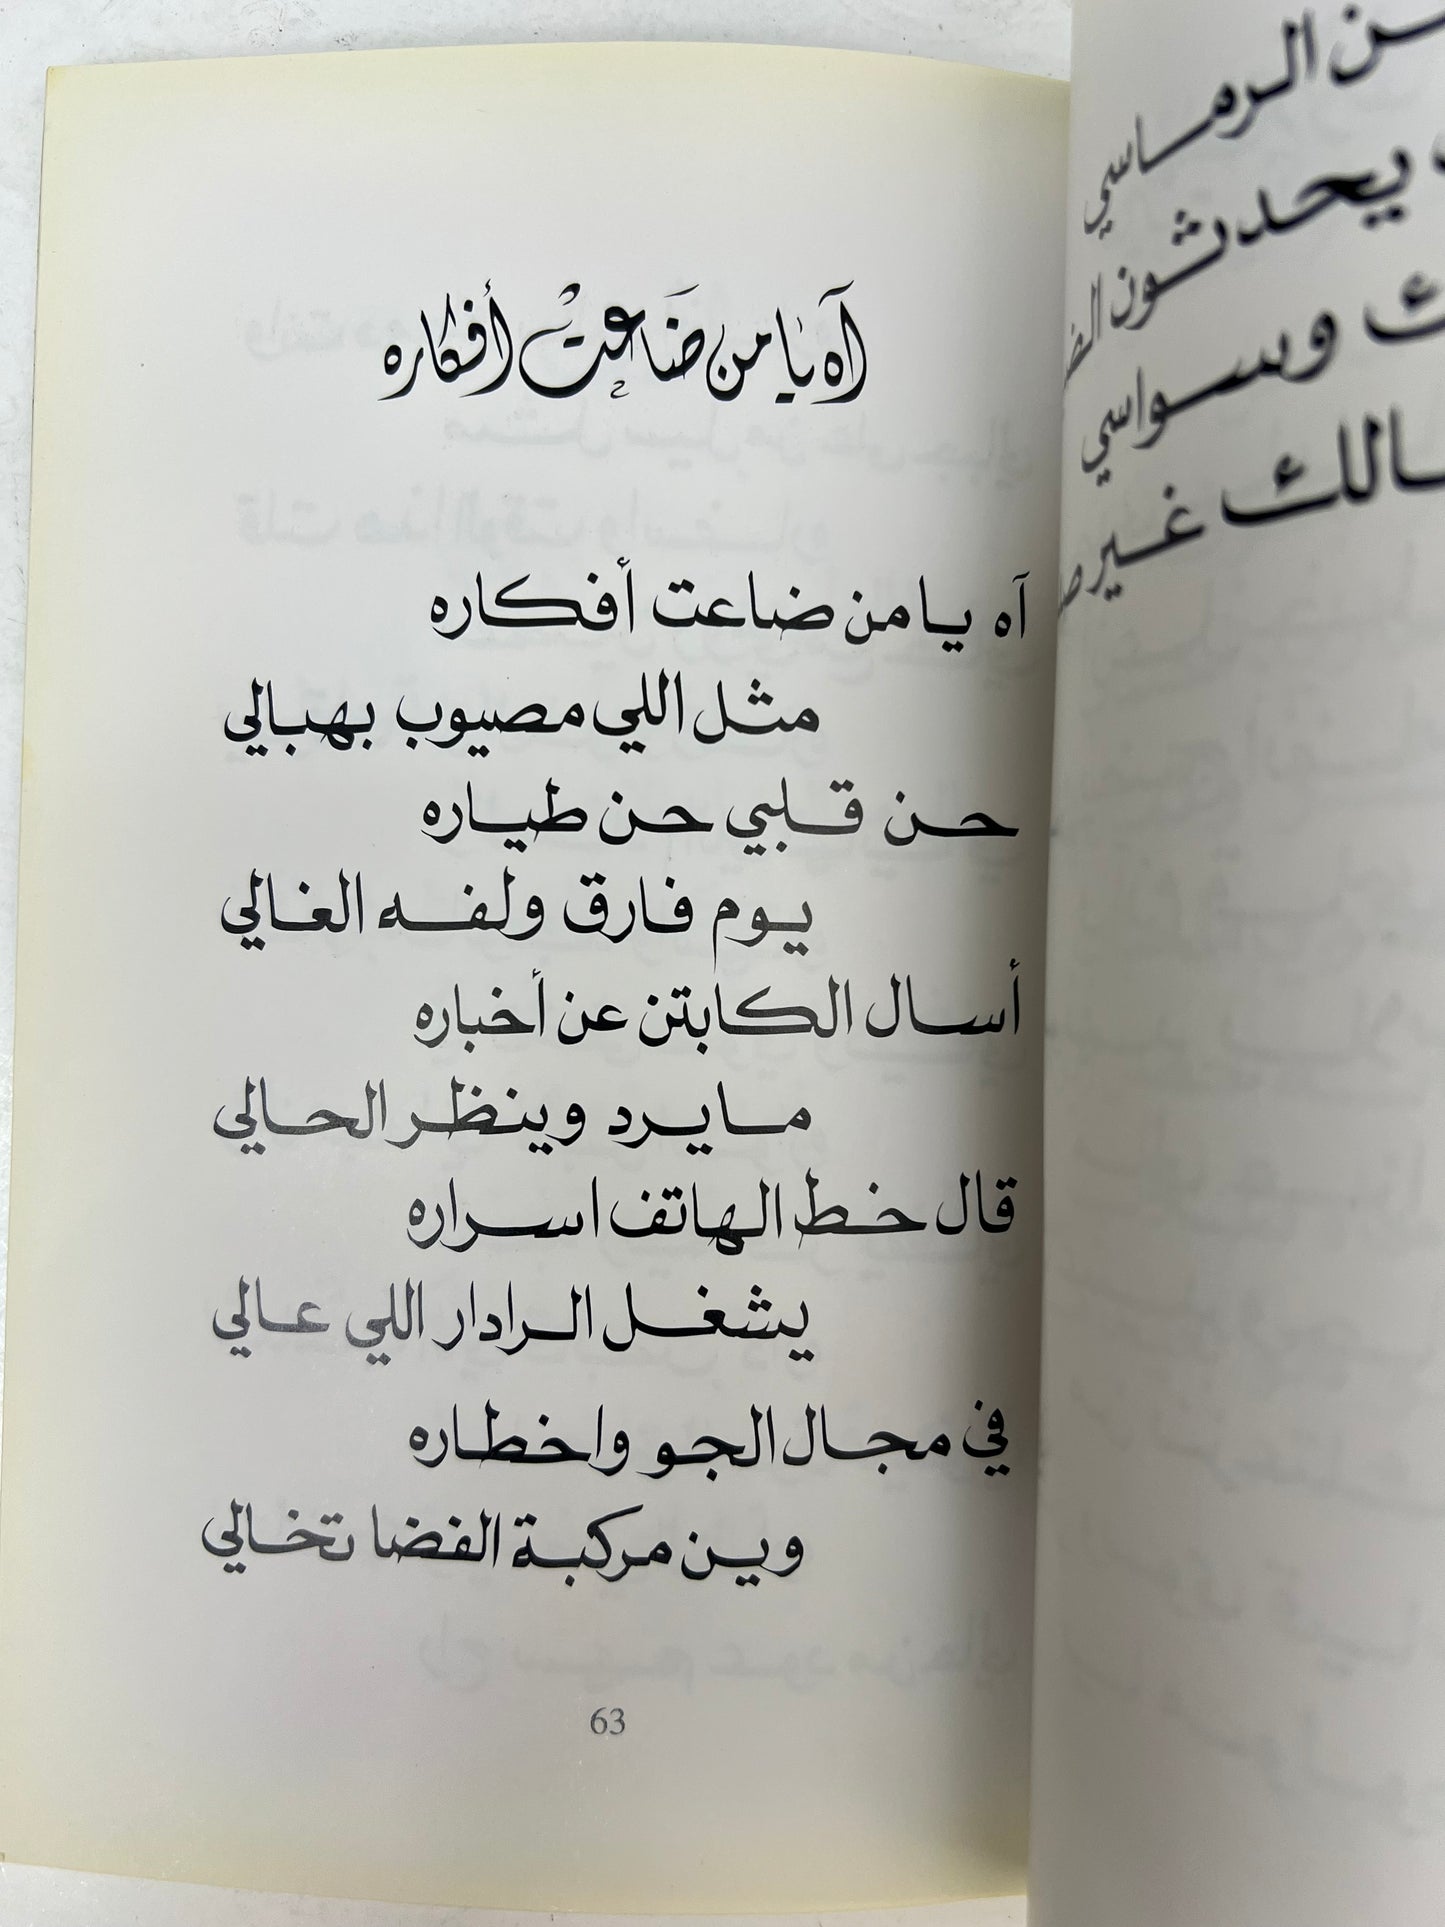 آه يا من ضاعت أفكاره
آه يا من ضاعت أفكاره
مثل اللي مصيوب بهبالي
حن قلبي حن طياره
يوم فارق ولفه الغالي
أسال الكابتن عن أخباره
ما يرد وينظر الحالي
قال خط الهاتف اسراره
يشغل الرادار اللي عالي
في مجال الجو واخطاره
وين مركبة الفضا تخالي
63
ن الرماسي
يحدثون
ك وسواسي
غير